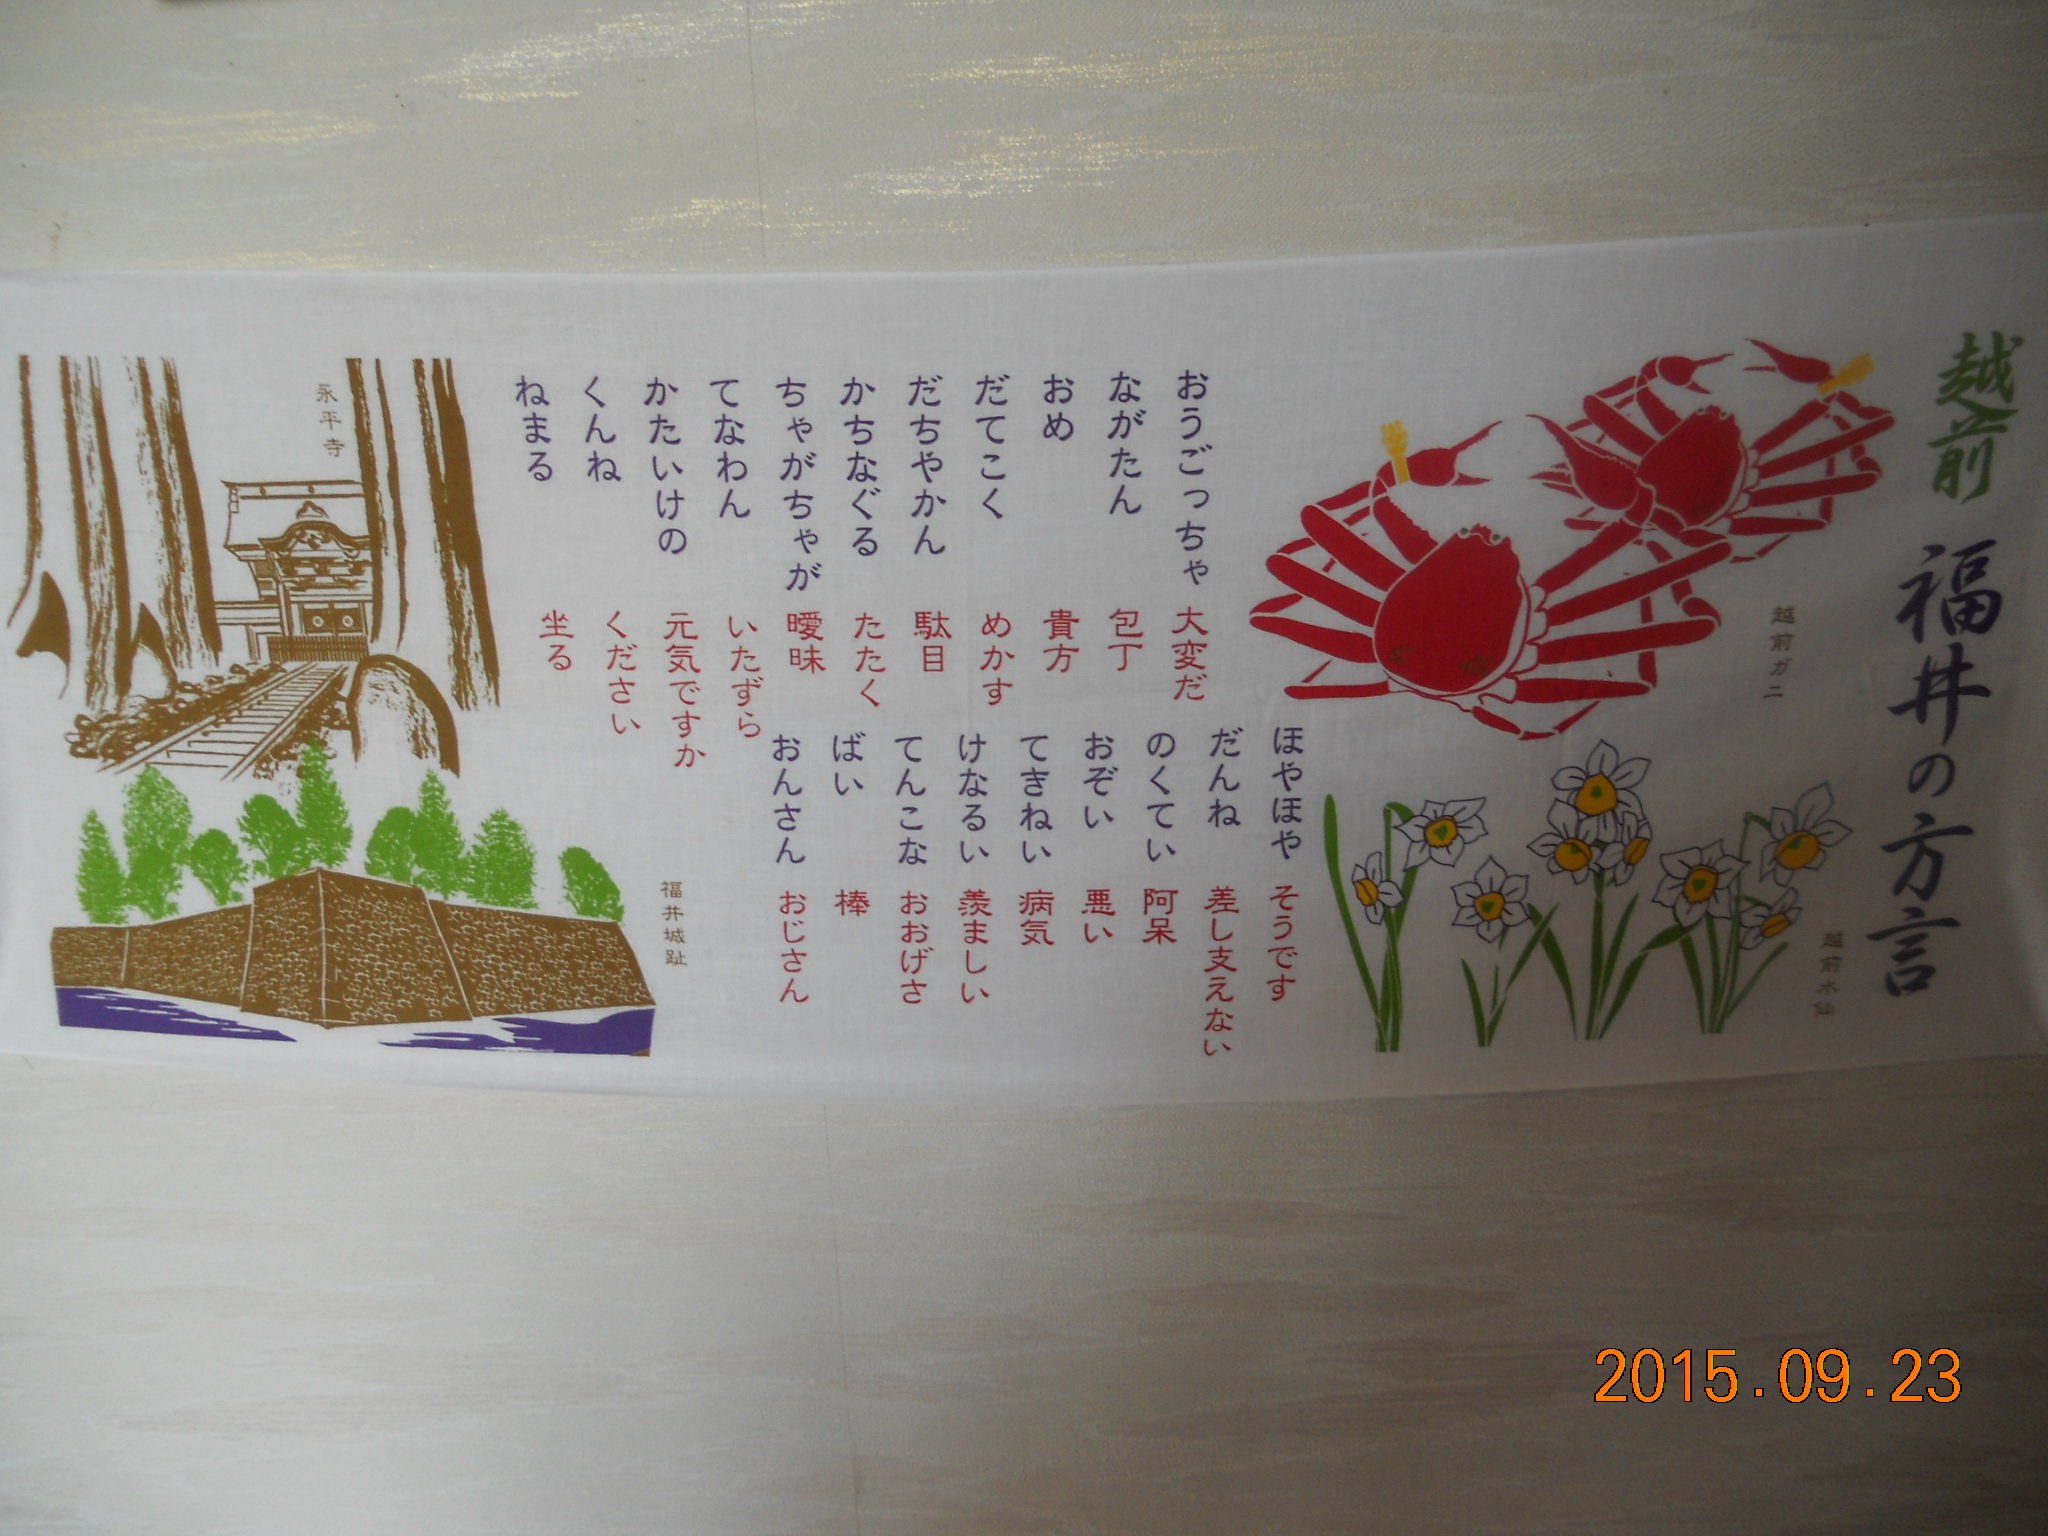 越前 福井の方言
越前ガニ
越前水仙
おうごっちゃ 大変だ
ながたん 包丁
おめ 貴方
だてこく めかす
だちやかん 駄目
かちなぐる たたく
ちゃがちゃが 曖昧
てなわん いたずら
かたいけの 元気ですか
くんね ください
ねまる 坐る
ほやほや そうです
だんね 差し支えない
のくてい 阿呆
おぞい 悪い
てきねい 病気
けなるい 羨ましい
てんこな おおげさ
ばい 棒
おんさん おじさん
永平寺
福井城趾
2015.09.23